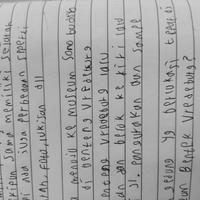 sama memiliki sejarah
ada juga perbedaan seperti
foto, lukisan dll
menuju ke museum sono budo
di benteng vredeburg
enteng vredeburg lalu
dan belok ke kiri lalu
Jl. Pangurakan dan sampe
gedung yg berlokasi tepat di
Benteng Vredeburg?